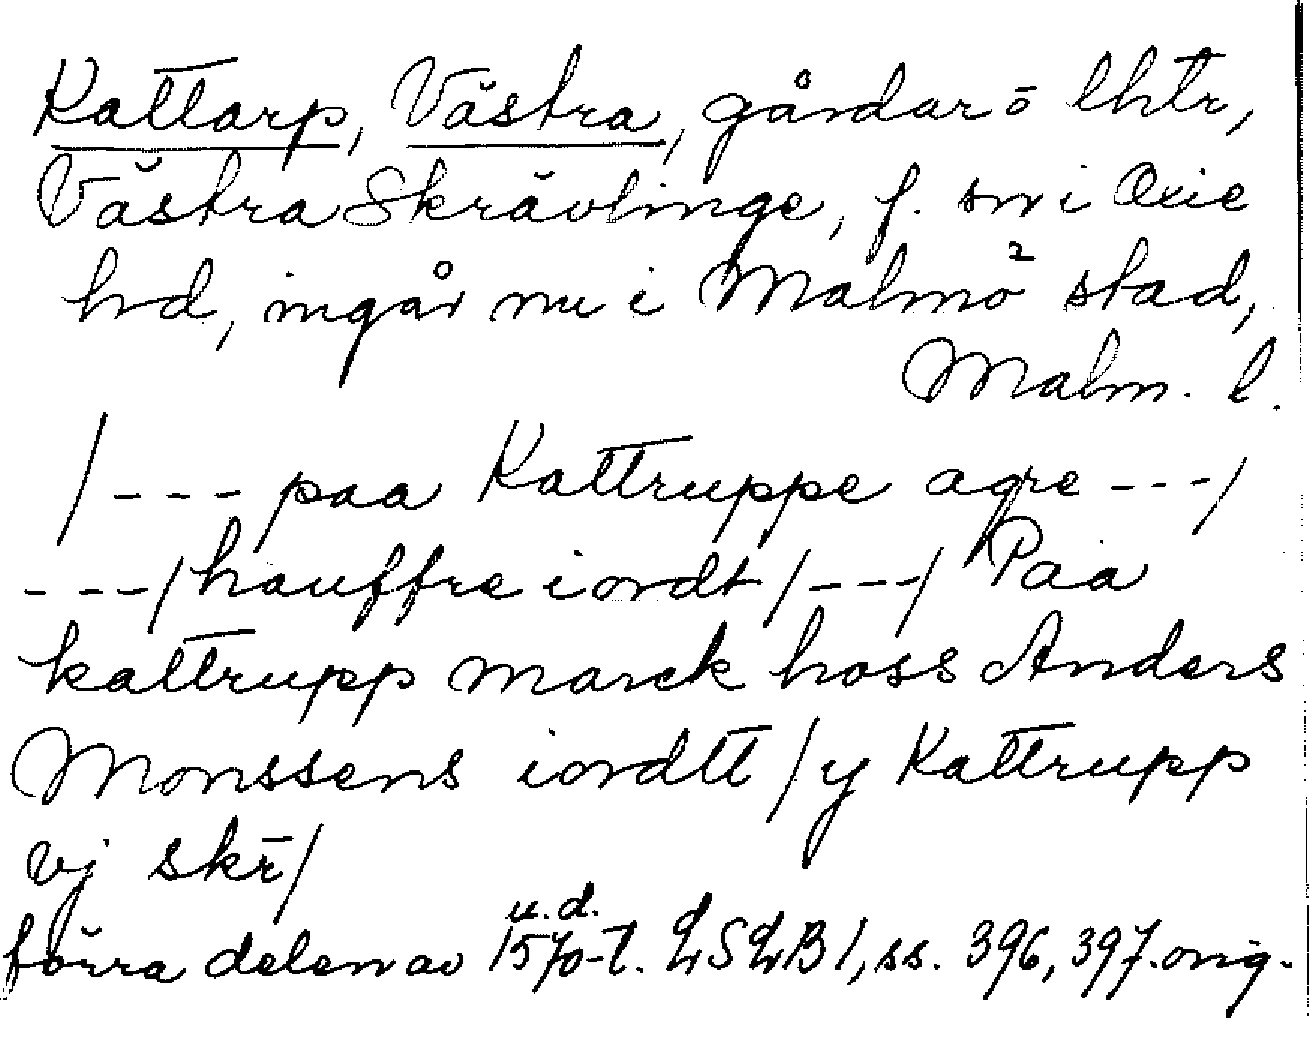 Kattarp, Västra, gårdar o lhtr,
Västra Skrävlinge, f. sn i Oxie
hd, ingår nu i Malmö stad,
Malm. l.
/--- paa Kattruppe agre ---/
---/hauffre iordt/---/ Paa
kattrupp marck hoss Anders
Monssens iordtt /y Kattrupp
vj skr̄/
u.d.
förra delen av 1570-t. LSLB 1, ss. 396, 397. orig.